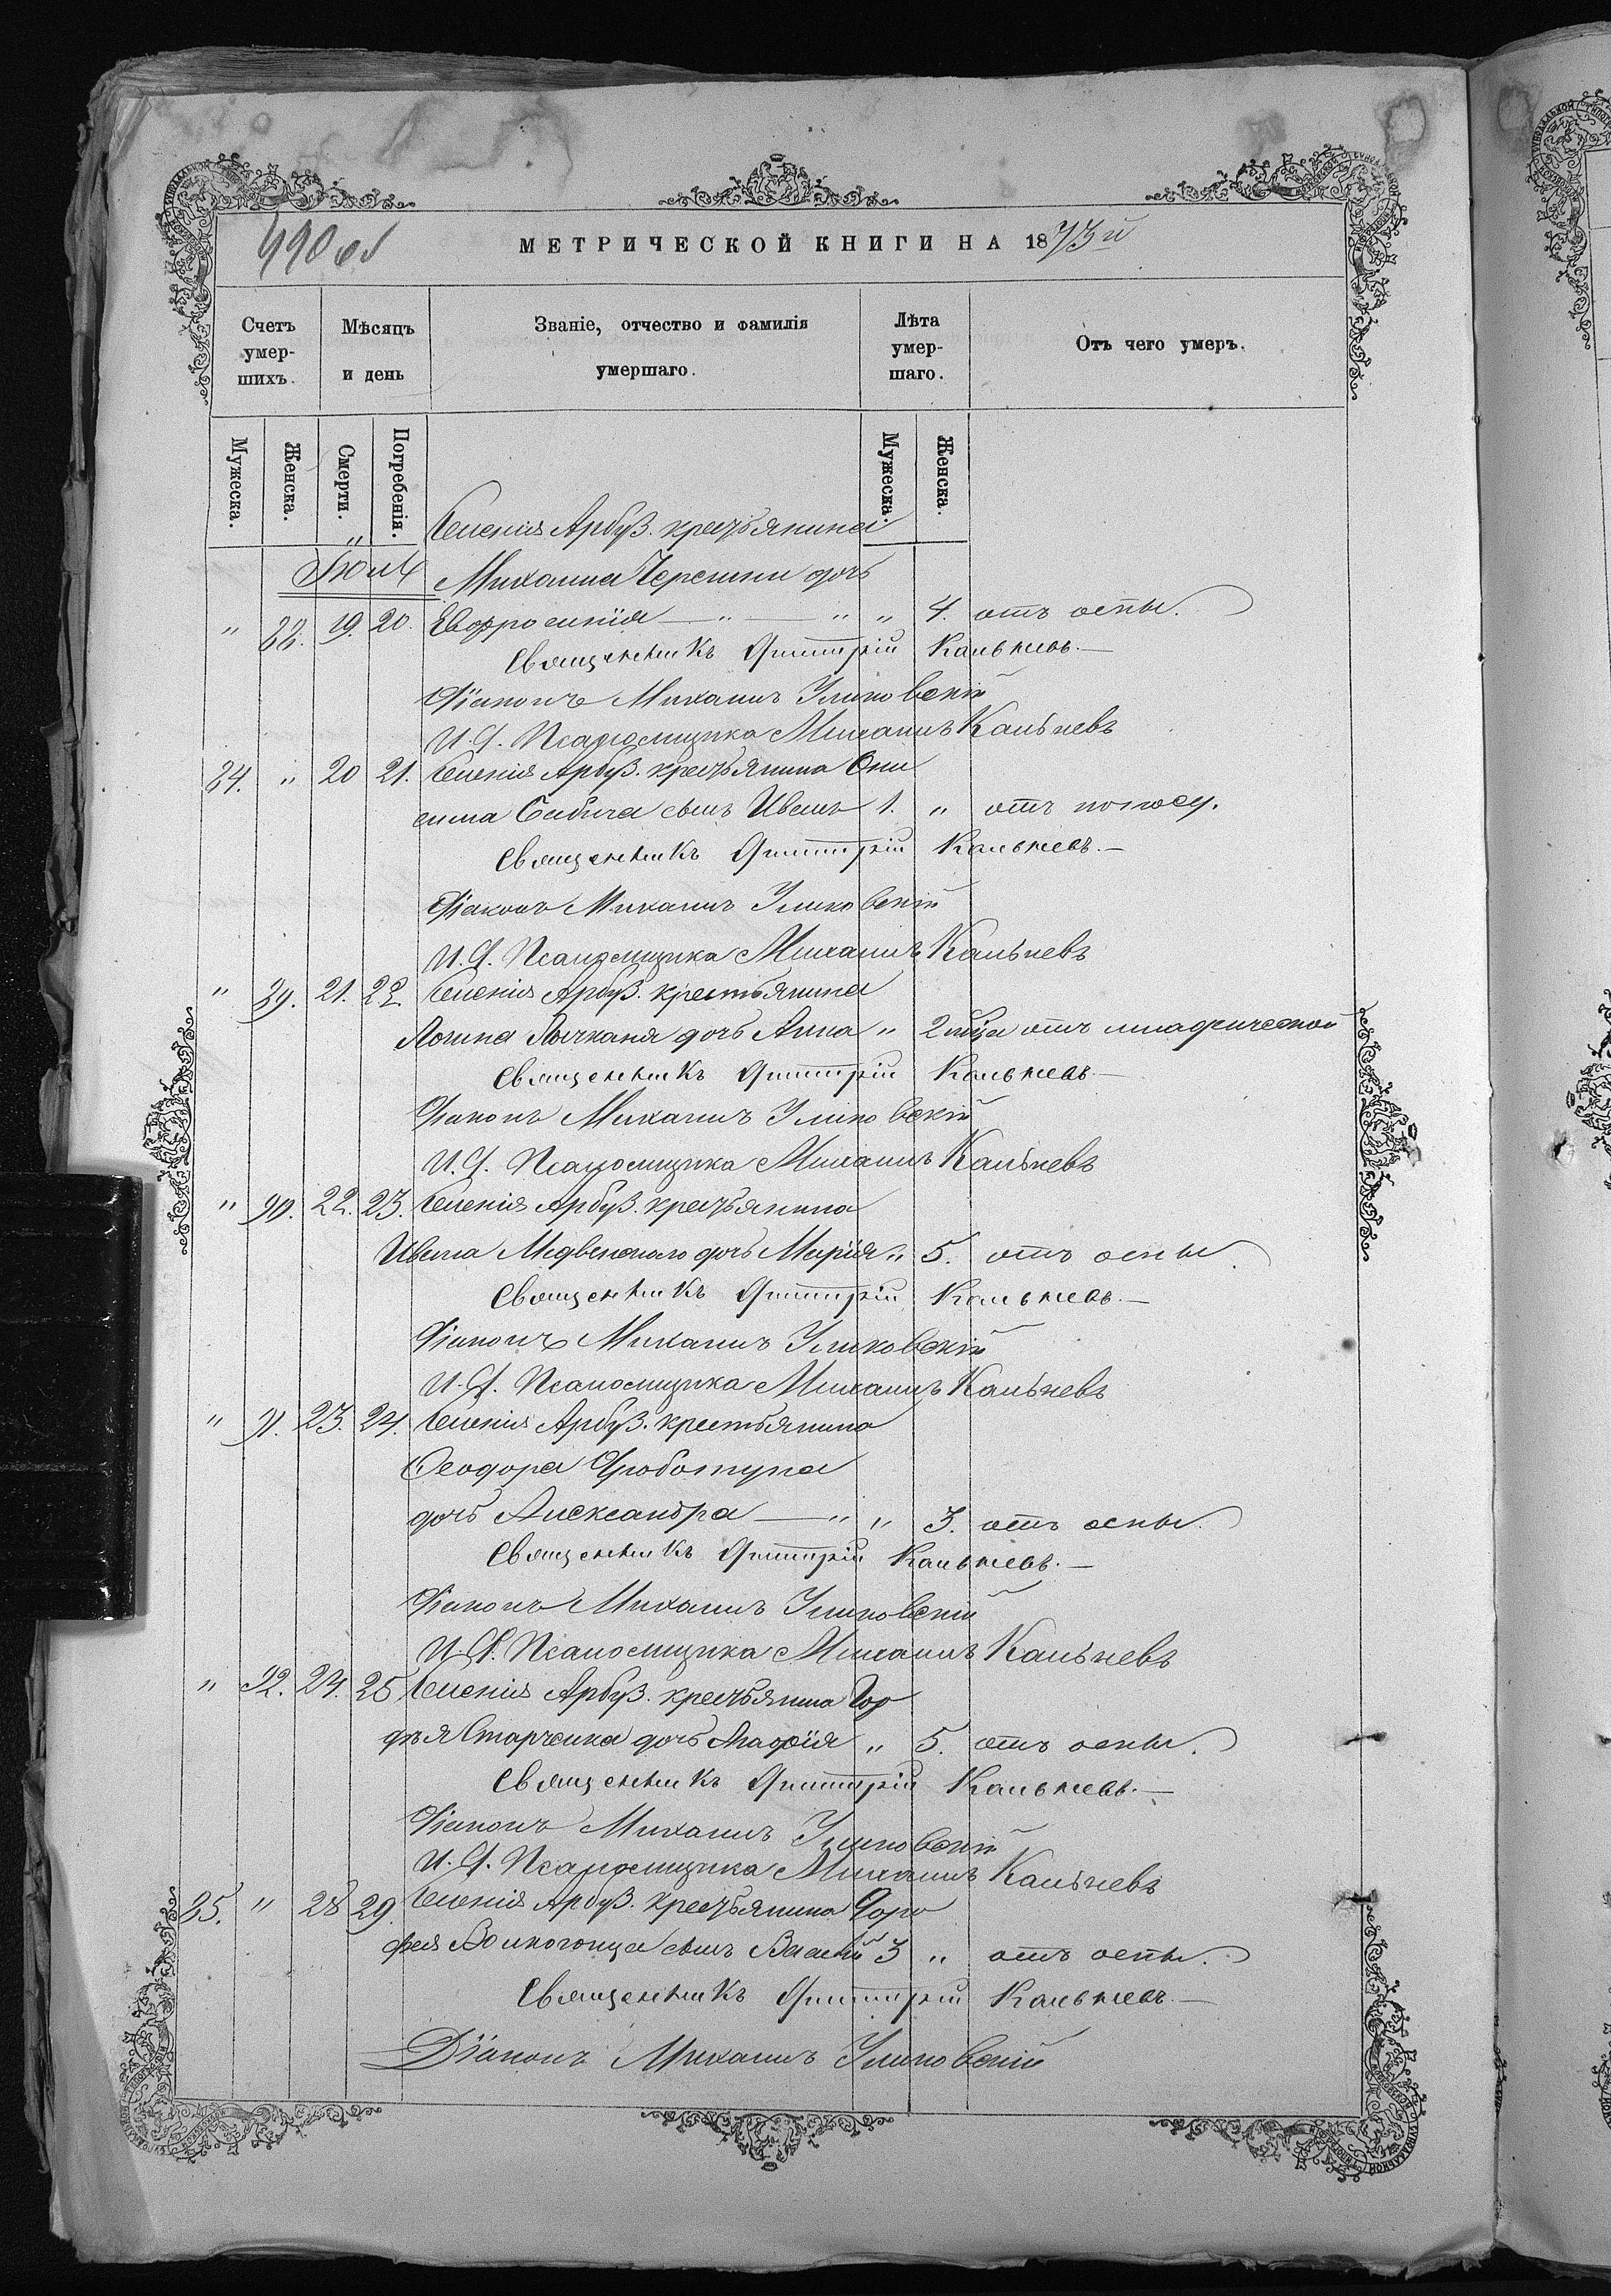 490 об
МЕТРИЧЕСКОЙ КНИГИ НА 1873й
Счетъ умер-шихъ.
Мѣсяцъ и день
Званіе, отчество и фамилія умершаго.
Лѣта умер-шаго.
Отъ чего умеръ.
Мужеска. Женска. Смерти. Погребенія. Мужеска. Женска.
Селенія Арбуз. крестьянина
Іюль Михаила Черешни дочь
" 88. 19. 20. Евфросинія — " — " " 4. отъ оспы.
Священникъ Димитрій Кальневъ. —
Діаконъ Михаилъ Уликовскій
И. Д. Псаломщика Михаилъ Кальневъ
84. " 20 21. Селенія Арбуз. крестьянина Они
сима Бабича сынъ Иванъ 1. " отъ поносу.
Священникъ Димитрій Кальневъ. —
Діаконъ Михаилъ Уликовскій
И. Д. Псаломщика Михаилъ Кальневъ
" 89. 21. 22. Селенія Арбуз. крестьянина
Логина дочь Анна " 2 мѣца отъ младенческой
Священникъ Димитрій Кальневъ. —
Діаконъ Михаилъ Уликовскій
И. Д. Псаломщика Михаилъ Кальневъ
" 90. 22. 23. Селенія Арбуз. крестьянина
Ивана Медвенскаго дочь Марія " 5. отъ оспы.
Священникъ Димитрій Кальневъ. —
Діаконъ Михаилъ Уликовскій
И. Д. Псаломщика Михаилъ Кальневъ
" 91. 23. 24. Селенія Арбуз. крестьянина
Ѳеодора
дочь Александра — " " 3. отъ оспы.
Священникъ Димитрій Кальневъ. —
Діаконъ Михаилъ Уликовскій
И. Д. Псаломщика Михаилъ Кальневъ
" 92. 24. 25 Селенія Арбуз. крестьянина Гор
дѣя Старченка дочь Агафія " 5. отъ оспы.
Священникъ Димитрій Кальневъ. —
Діаконъ Михаилъ Уликовскій
И. Д. Псаломщика Михаилъ Кальневъ
85. " 28 29. Селенія Арбуз. крестьянина Доро
фея сынъ Василій 3 " отъ оспы.
Священникъ Димитрій Кальневъ. —
Діаконъ Михаилъ Уликовскій